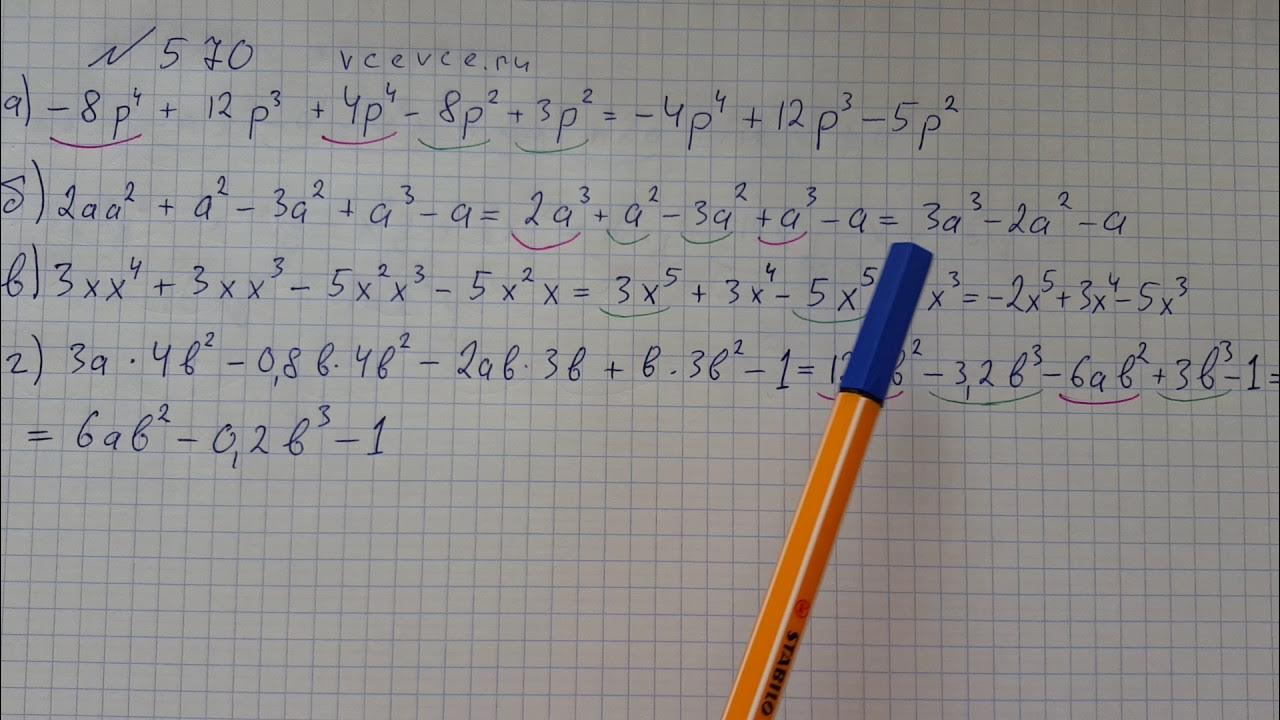 № 570 vcevce.ru
а) -8p⁴ + 12p³ + 4p⁴ - 8p² + 3p² = -4p⁴ + 12p³ - 5p²
б) 2aa² + a² - 3a² + a³ - a = 2a³ + a² - 3a² + a³ - a = 3a³ - 2a² - a
в) 3xx⁴ + 3xx³ - 5x²x³ - 5x²x = 3x⁵ + 3x⁴ - 5x⁵ x³ = -2x⁵ + 3x⁴ - 5x³
г) 3a · 4b² - 0,8b · 4b² - 2ab · 3b + b · 3b² - 1 = 1 b² - 3,2b³ - 6ab² + 3b³ - 1 =
= 6ab² - 0,2b³ - 1
STABILO